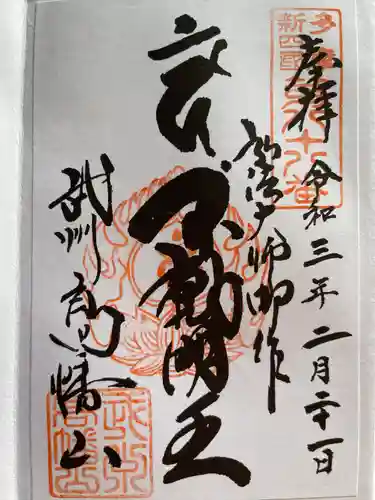 多摩
新四國
八十八番
奉拝
令和三年二月二十一日
弘法大師御作
不動明王
武州
高幡山